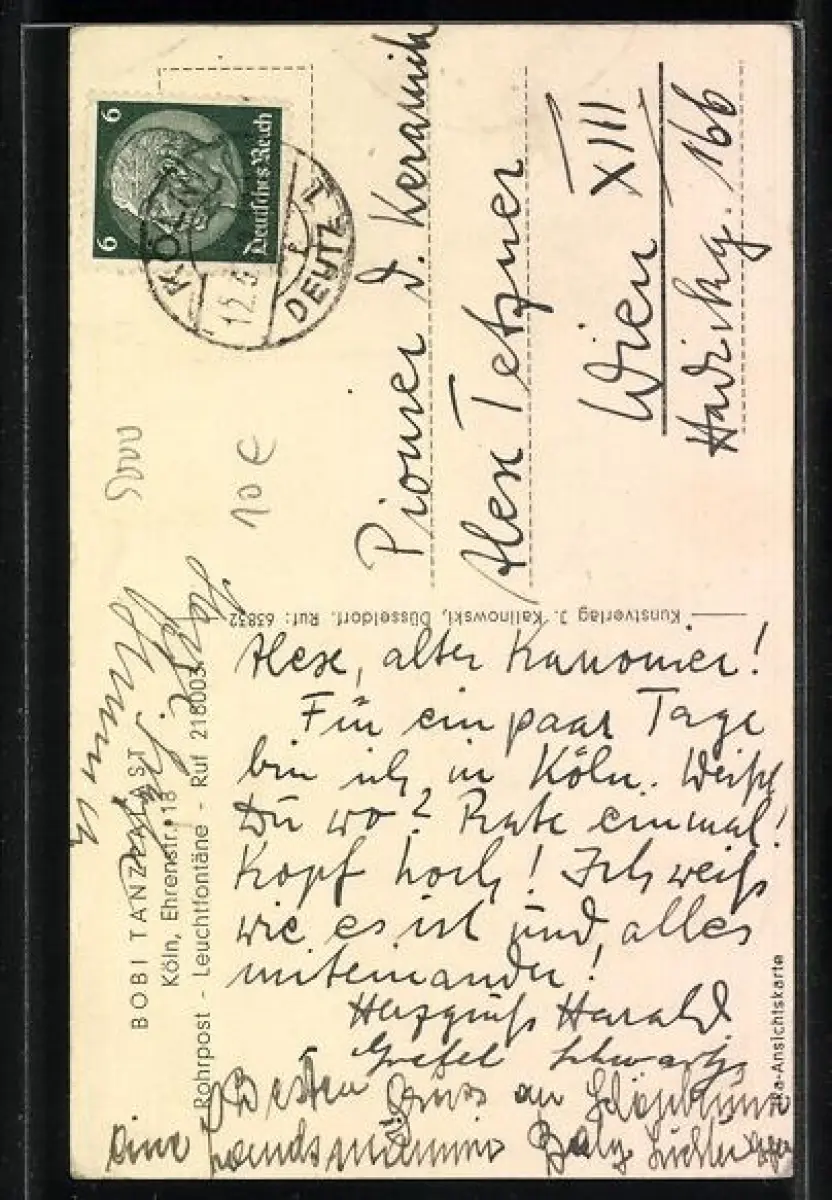 BOBI TANZPALAST
Köln, Ehrenstr. 18
Rohrpost - Leuchtfontäne - Ruf 218003
Kunstverlag J. Kalinowski, Düsseldorf. Ruf: 63832
-Ansichtskarte
6
6
Deutsches Reich
KÖLN
12.5
DEUTZ 1
5000
10 €
Pionier d. Keramik
Alex Tetzner
Wien XIII
166
Alex, alter Kanonier!
Für ein paar Tage
bin ich in Köln. Weißt
Du wo? Rate einmal!
Kopf hoch! Ich weiß
wie es ist und alles
miteinander!
Herzgruß Harald
Gretel Schwarz
Besten Gruss an
eine